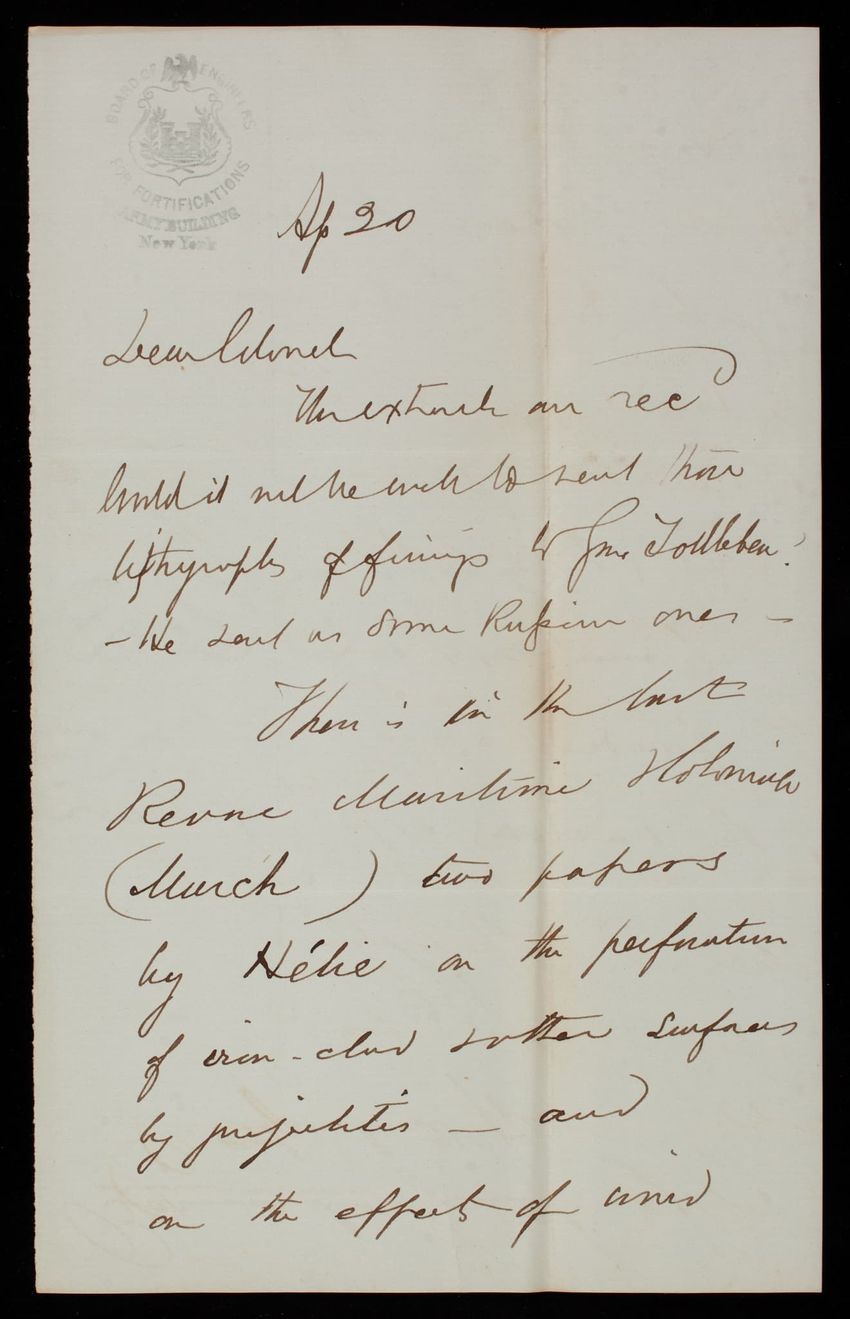 BOARD OF ENGINEERS
FOR FORTIFICATIONS
ARMY BUILDING
New York
Ap 20
Dear Colonel
The extracts are recd
Would it not be well to send those
lithographs of firings to Gen Todtleben?
– He sent us some Russian ones –
There is in the last
Revue Maritime & Coloniale
(March) two papers
by Hélie on the perforation
of iron-clad & other surfaces
by projectiles – and
on the effect of wind